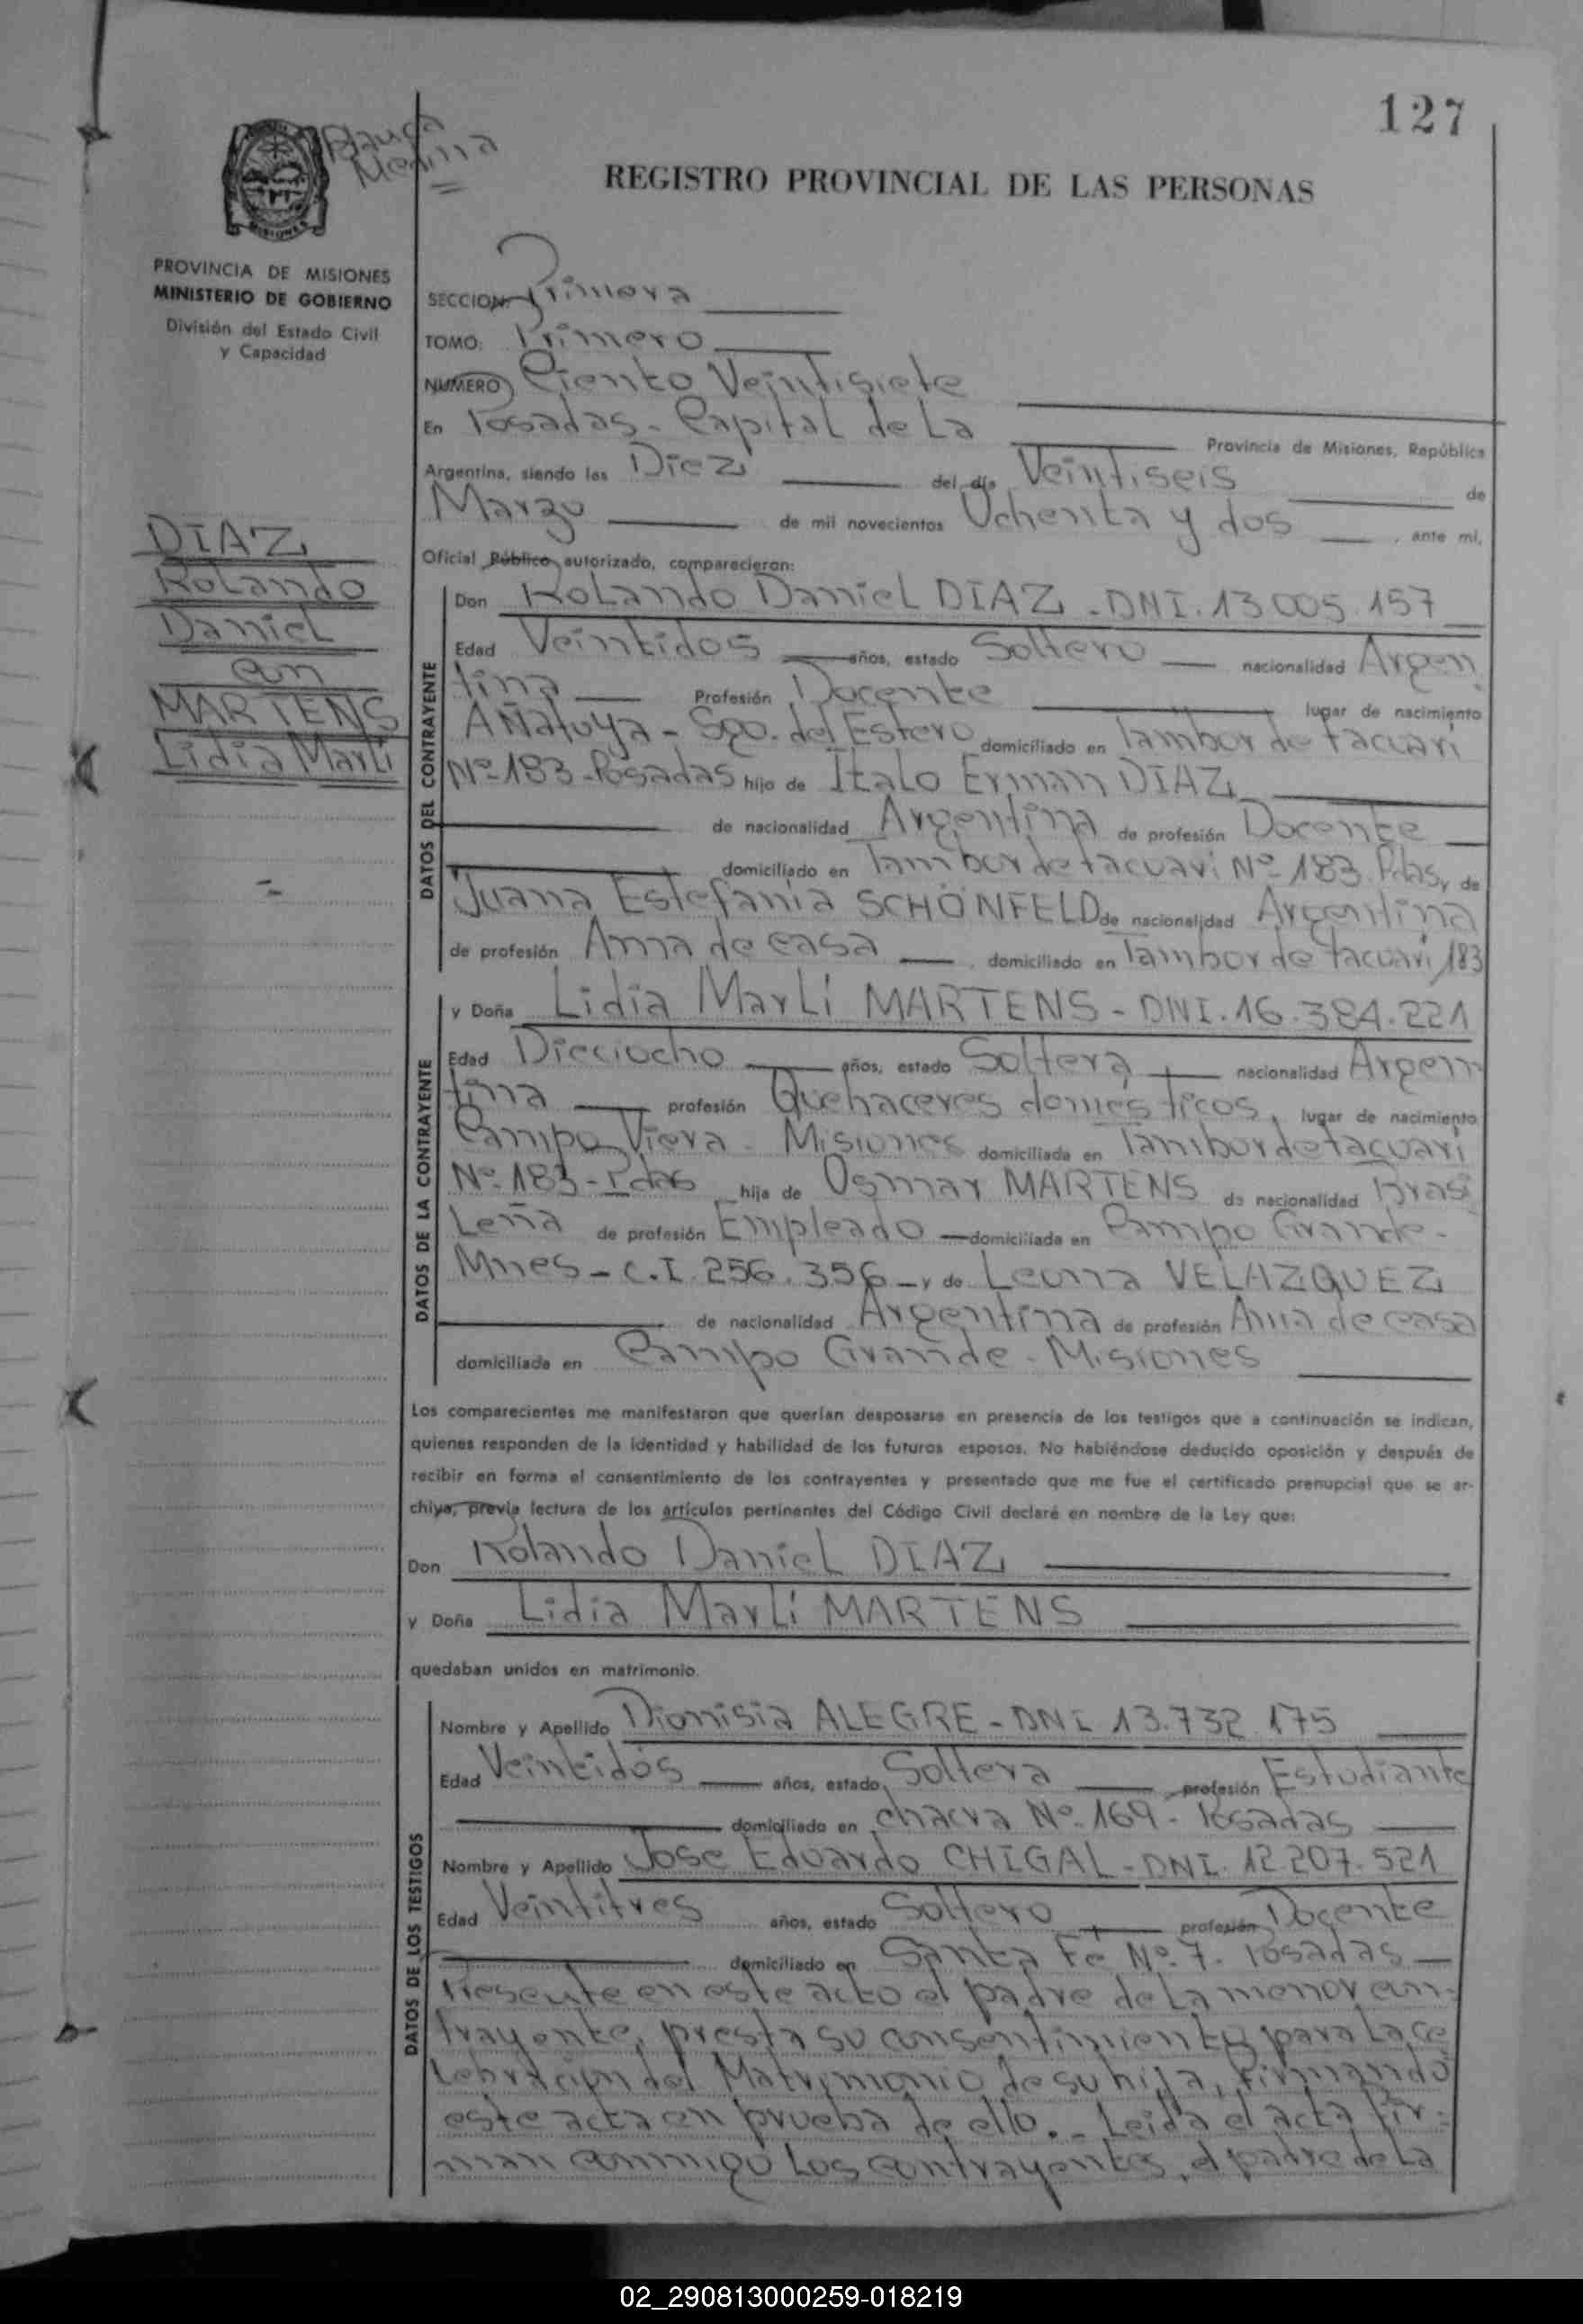 127
Blanca
Medina
REGISTRO PROVINCIAL DE LAS PERSONAS
PROVINCIA DE MISIONES
MINISTERIO DE GOBIERNO
División del Estado Civil
y Capacidad
DIAZ
Rolando
Daniel
con
MARTENS
Lidia Marlí
SECCION: Primera
TOMO: Primero
NUMERO Ciento Veintisiete
En Posadas - Capital de La Provincia de Misiones, República
Argentina, siendo las Diez del día Veintiseis de
Marzo de mil novecientos Ochenta y dos, ante mí,
Oficial Público autorizado, comparecieron:
DATOS DEL CONTRAYENTE
Don Rolando Daniel DIAZ - DNI. 13.005.157
Edad Veintidos años, estado Soltero nacionalidad Argen
tina Profesión Docente lugar de nacimiento
Añatuya - Sgo. del Estero domiciliado en Tambor de Tacuari
Nº 183 - Posadas hijo de Italo Erman DIAZ
de nacionalidad Argentina de profesión Docente
domiciliado en Tambor de tacuari Nº 183 Pdas, y de
Juana Estefania SCHÖNFELD de nacionalidad Argentina
de profesión Ama de casa domiciliado en Tambor de Tacuari 183
DATOS DE LA CONTRAYENTE
y Doña Lidia Marlí MARTENS - DNI. 16.384.221
Edad Dieciocho años, estado Soltera nacionalidad Argen
tina profesión Quehaceres domésticos, lugar de nacimiento
Campo Viera - Misiones domiciliada en Tambor de tacuari
Nº 183 - Pdas hija de Osmar MARTENS de nacionalidad Brasi
Leña de profesión Empleado domiciliada en Campo Grande -
Mnes - C.I. 256.356 - y de Leona VELAZQUEZ
de nacionalidad Argentina de profesión Ama de casa
domiciliada en Campo Grande - Misiones
Los comparecientes me manifestaron que querían desposarse en presencia de los testigos que a continuación se indican,
quienes responden de la identidad y habilidad de los futuros esposos. No habiéndose deducido oposición y después de
recibir en forma el consentimiento de los contrayentes y presentado que me fue el certificado prenupcial que se ar-
chiva, previa lectura de los artículos pertinentes del Código Civil declaré en nombre de la Ley que:
Don Rolando Daniel DIAZ
y Doña Lidia Marlí MARTENS
quedaban unidos en matrimonio.
DATOS DE LOS TESTIGOS
Nombre y Apellido Dionisia ALEGRE - DNI 13.732.175
Edad Veintidós años, estado Soltera profesión Estudiante
domiciliado en chacra Nº 169 - Posadas
Nombre y Apellido Jose Eduardo CHIGAL - DNI. 12.207.521
Edad Veintitres años, estado Soltero profesión Docente
domiciliado en Santa Fé Nº 7. Posadas
Presente en este acto el padre de La menor con-
trayente, presta su consentimiento para La ce
Lebración del Matrimonio de su hija, firmando
este acta en prueba de ello. - Leida el acta fir-
man conmigo Los contrayentes, el padre de La
02_290813000259-018219